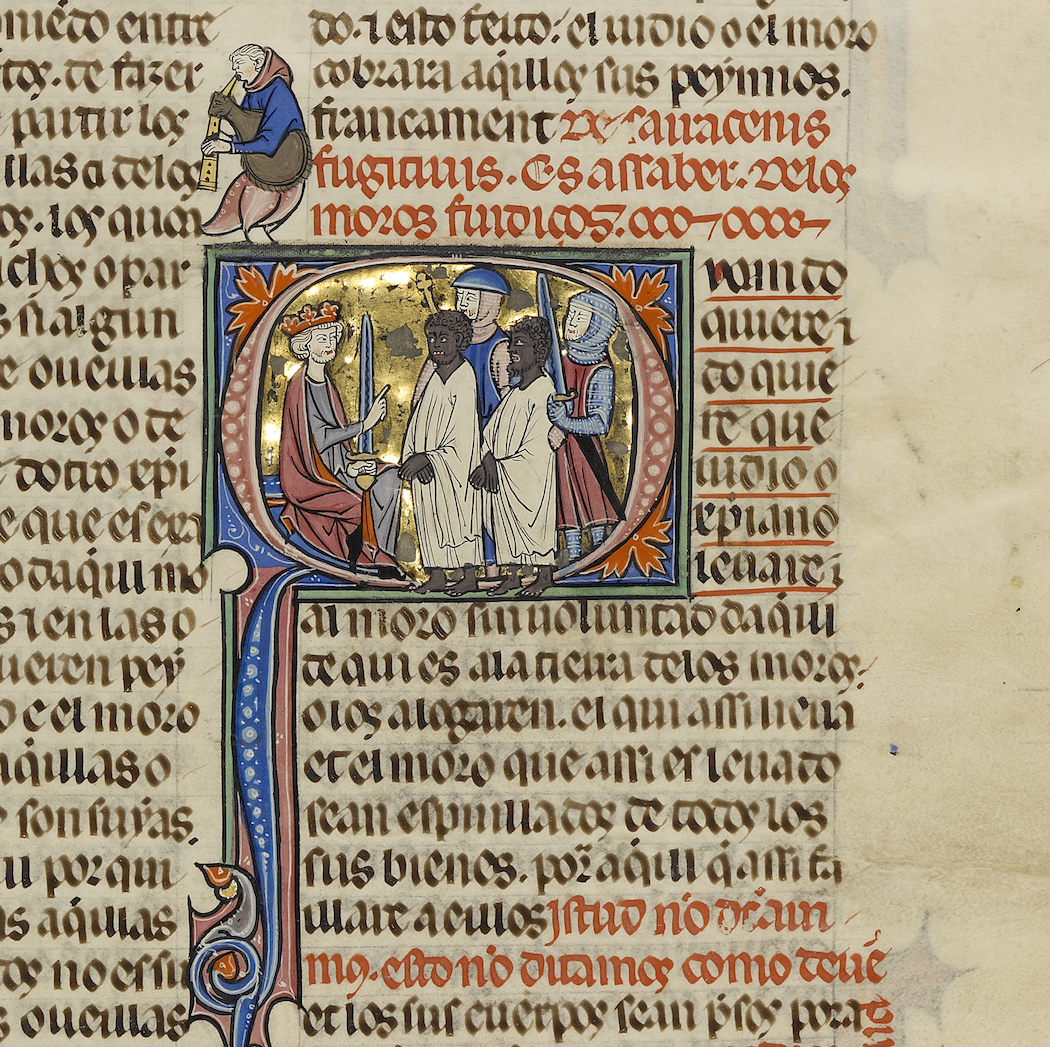 entre
de fazer
partir los
a delos
los
o par
si algun
oueillas
moros o de
dotro xp̃i
que
o daquil mo
en las o
pey
o e el moro
aquillas o
son suyas.
por qui
aquillas
no es su
oueillas
do. ⁊ esto feito: el iudio o el moro
cobrara aquillos sus peynnos.
francament De sarracenis
fugitiuis. Es assaber. Delos
moros fuidiços.
uando
quiere ⁊
do quie
re que
iudio o
xp̃iano
leuare
al moro sin uoluntad daquil
de qui es ala tierra delos moros.
o los aloguen. el qui assi lieua
et el moro que assi es leuado
sean espuillados de todos los
sus bienes. por aquill q̃ assi fa
illare aeillos Istud nõ dicam
m9. esto nõ diramos como deue
et los sus cuerpos sean p̃sos pora